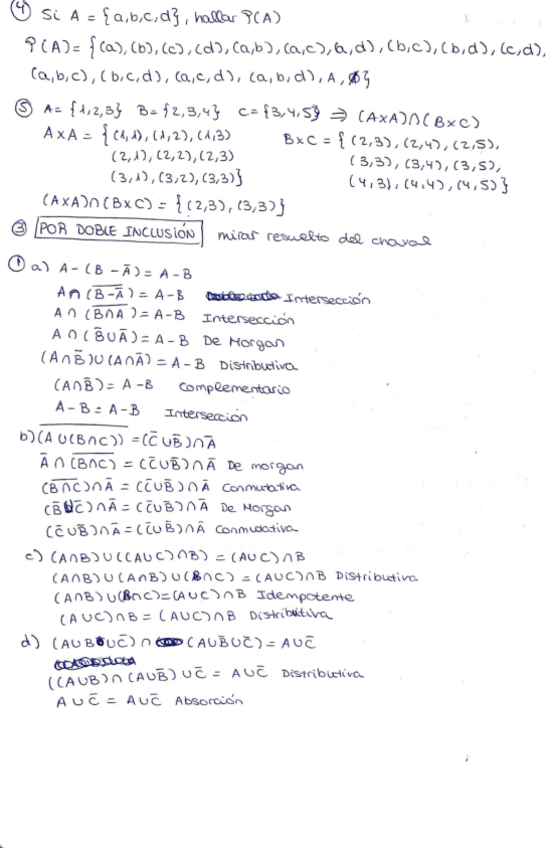 ④ Si A = {a,b,c,d}, hallar P(A)
P(A) = {(a), (b), (c), (d), (a,b), (a,c), (a,d), (b,c), (b,d), (c,d),
(a,b,c), (b,c,d), (a,c,d), (a,b,d), A, ∅}
⑤ A = {1,2,3} B = {2,3,4} C = {3,4,5} ⇒ (A×A)∩(B×C)
A×A = {(1,1), (1,2), (1,3) B×C = {(2,3), (2,4), (2,5),
(2,1), (2,2), (2,3) (3,3), (3,4), (3,5),
(3,1), (3,2), (3,3)} (4,3), (4,4), (4,5)}
(A×A)∩(B×C) = {(2,3), (3,3)}
③ POR DOBLE INCLUSIÓN mirar resuelto del chaval
① a) A-(B-Ā) = A-B
A∩(B̅-̅A̅̅) = A-B Intersección
A∩(B̅∩̅A̅̅) = A-B Intersección
A∩(B̄∪Ā) = A-B De Morgan
(A∩B̄)∪(A∩Ā) = A-B Distributiva
(A∩B̄) = A-B Complementario
A-B = A-B Intersección
b) (̅A̅∪̅(̅B̅∩̅C̅)̅)̅ = (C̄∪B̄)∩Ā
Ā∩(̅B̅∩̅C̅)̅ = (C̄∪B̄)∩Ā De morgan
(̅B̅∩̅C̅)̅∩Ā = (C̄∪B̄)∩Ā Conmutativa
(B̄∪C̄)∩Ā = (C̄∪B̄)∩Ā De Morgan
(C̄∪B̄)∩Ā = (C̄∪B̄)∩Ā Conmutativa
c) (A∩B)∪((A∪C)∩B) = (A∪C)∩B
(A∩B)∪(A∩B)∪(B∩C) = (A∪C)∩B Distributiva
(A∩B)∪(B∩C) = (A∪C)∩B Idempotente
(A∪C)∩B = (A∪C)∩B Distributiva
d) (A∪B∪C̄)∩(A∪B̄∪C̄) = A∪C̄
((A∪B)∩(A∪B̄)∪C̄ = A∪C̄ Distributiva
A∪C̄ = A∪C̄ Absorción